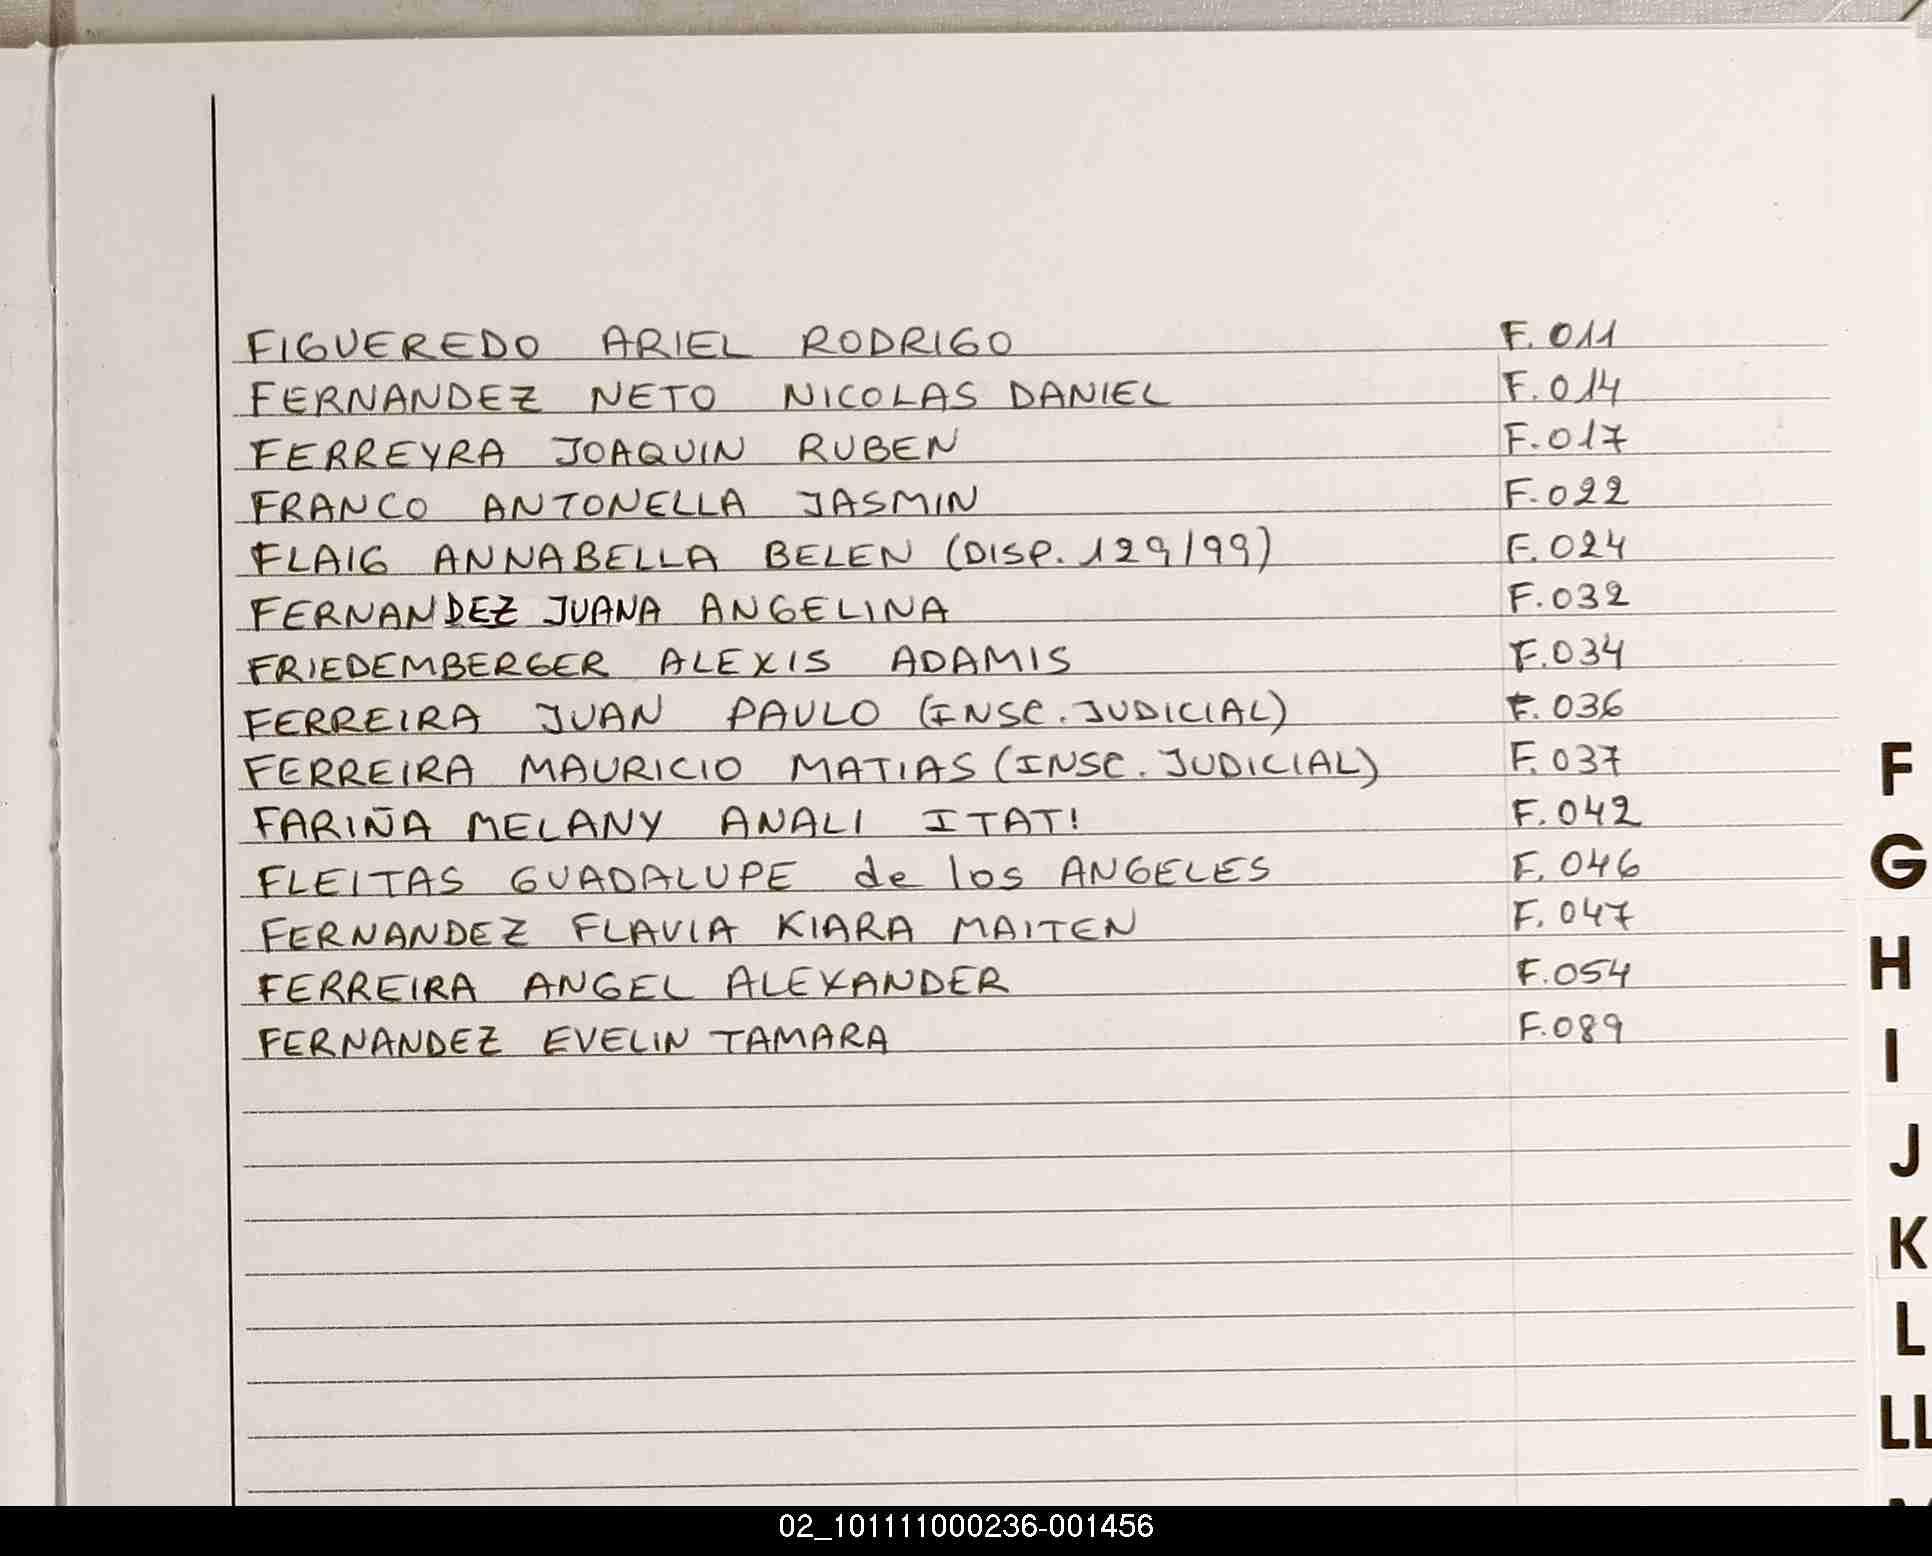 FIGUEREDO ARIEL RODRIGO F. 011
FERNANDEZ NETO NICOLAS DANIEL F. 014
FERREYRA JOAQUIN RUBEN F. 017
FRANCO ANTONELLA JASMIN F. 022
FLAIG ANNABELLA BELEN (DISP. 129/99) F. 024
FERNANDEZ JUANA ANGELINA F. 032
FRIEDEMBERGER ALEXIS ADAMIS F. 034
FERREIRA JUAN PAULO (INSC. JUDICIAL) F. 036
FERREIRA MAURICIO MATIAS (INSC. JUDICIAL) F. 037
FARIÑA MELANY ANALI ITATI F. 042
FLEITAS GUADALUPE de los ANGELES F. 046
FERNANDEZ FLAVIA KIARA MAITEN F. 047
FERREIRA ANGEL ALEXANDER F. 054
FERNANDEZ EVELIN TAMARA F. 089
F
G
H
I
J
K
L
LL
02_101111000236-001456